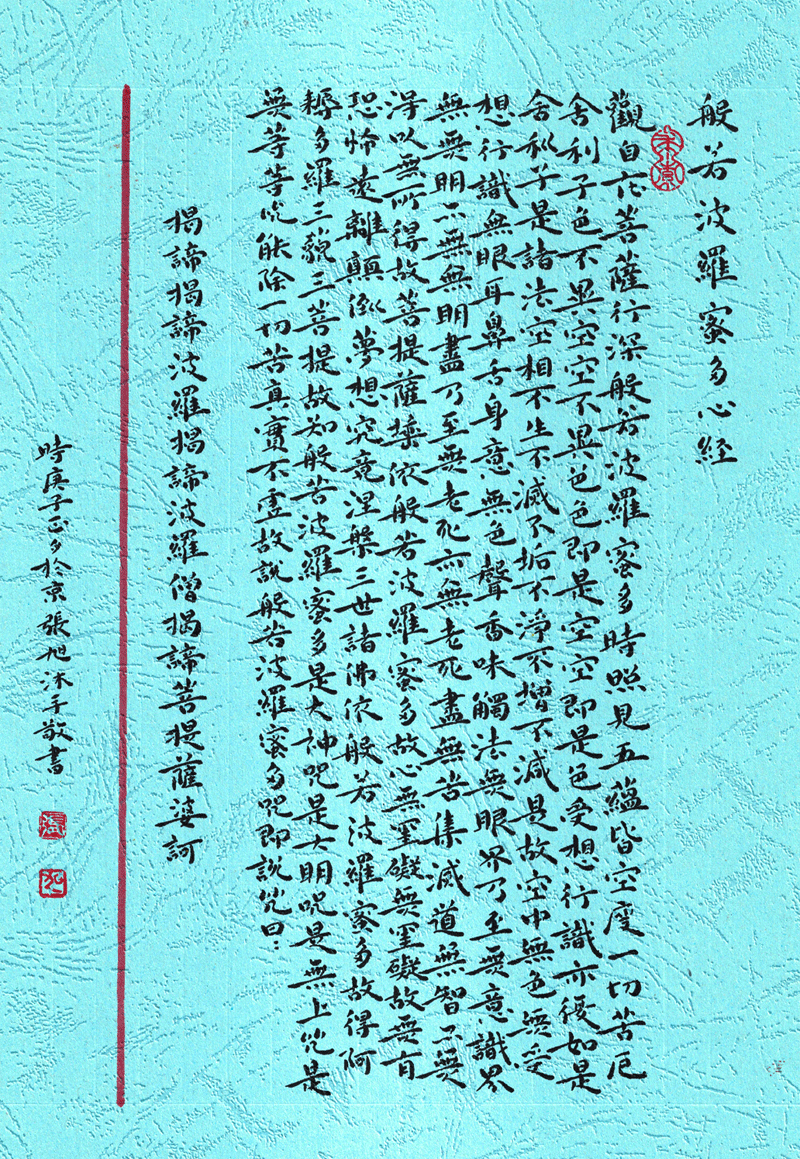 般若波羅蜜多心経
觀自在菩薩行深般若波羅蜜多時照見五蘊皆空度一切苦厄
舍利子色不異空空不異色色即是空空即是色受想行識亦復如是
舍利子是諸法空相不生不滅不垢不淨不增不減是故空中無色無受
想行識無眼耳鼻舌身意無色聲香味觸法無眼界乃至無意識界
無無明亦無無明盡乃至無老死亦無老死盡無苦集滅道無智亦無
得以無所得故菩提薩埵依般若波羅蜜多故心無罣礙無罣礙故無有
恐怖遠離顛倒夢想究竟涅槃三世諸佛依般若波羅蜜多故得阿
耨多羅三藐三菩提故知般若波羅蜜多是大神咒是大明咒是無上咒是
無等等咒能除一切苦真實不虛故說般若波羅蜜多咒即說咒曰：
揭諦揭諦波羅揭諦波羅僧揭諦菩提薩婆訶
時庚子正夕於京張旭沐手敬書
張
旭